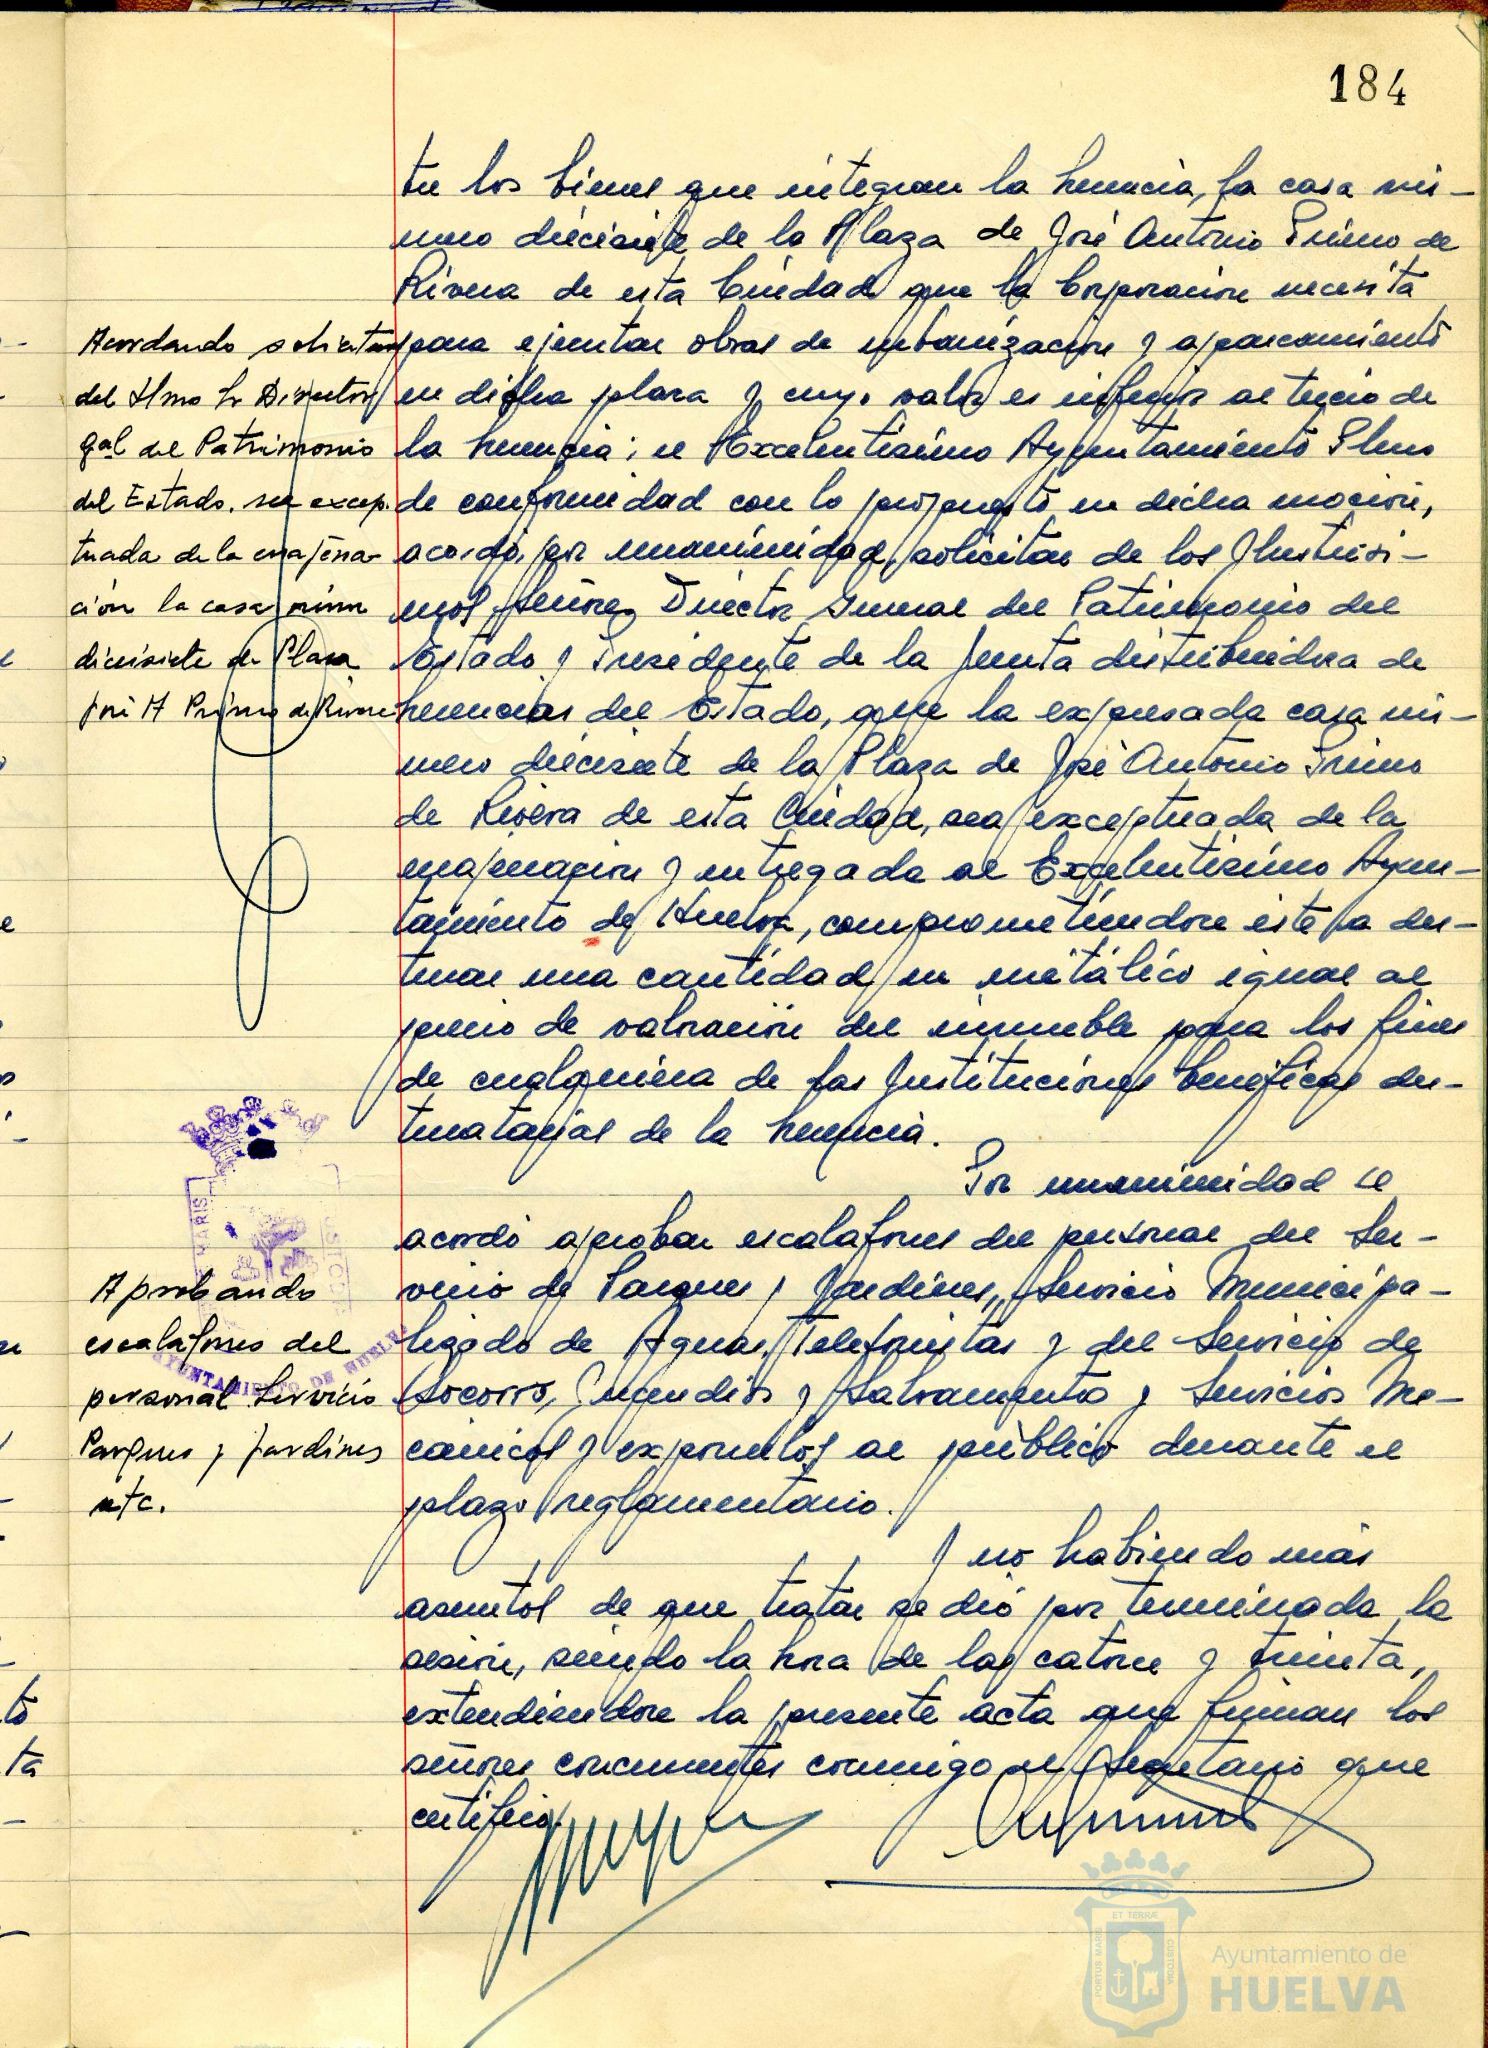 184
tre los bienes que integran la herencia, la casa nú-
mero diecisiete de la Plaza de José Antonio Primo de
Rivera de esta Ciudad que la Corporación necesita
para ejecutar obras de urbanización y aparcamiento
en dicha plaza y cuyo valor es inferior al tercio de
la herencia; el Excelentísimo Ayuntamiento Pleno
de conformidad con lo propuesto en dicha moción,
acordó, por unanimidad, solicitar de los Ilustrísi-
mos señores Director General del Patrimonio del
Estado y Presidente de la Junta distribuidora de
herencias del Estado, que la expresada casa nú-
mero diecisiete de la Plaza de José Antonio Primo
de Rivera de esta Ciudad, sea exceptuada de la
enajenación y entregada al Excelentísimo Ayun-
tamiento de Huelva, comprometiéndose éste a des-
tinar una cantidad en metálico igual al
precio de valoración del inmueble para los fines
de cualquiera de las Instituciones benéficas des-
tinatarias de la herencia.
Por unanimidad se
acordó aprobar escalafones del personal del Ser-
vicio de Parques y Jardines, Servicio Municipa-
lizado de Aguas, Telefonistas y del Servicio de
Socorro, Incendios y Salvamento y Servicios Me-
cánicos y exponerlos al público durante el
plazo reglamentario.
Y no habiendo más
asuntos de que tratar se dió por terminada la
sesión, siendo la hora de las catorce y treinta,
extendiéndose la presente acta que firman los
señores concurrentes conmigo el Secretario que
certifico.
Acordando solicitar
del Ilmo Sr Director
gral del Patrimonio
del Estado, sea excep-
tuada de la enajena-
ción la casa núm
diecisiete de Plaza
José A Primo de Rivera
Aprobando
escalafones del
personal Servicio
Parques y Jardines
etc.
MARIS
CUSTODIA
AYUNTAMIENTO DE HUELVA
PORTUS MARIS
ET TERRÆ
CUSTODIA
Ayuntamiento de
HUELVA